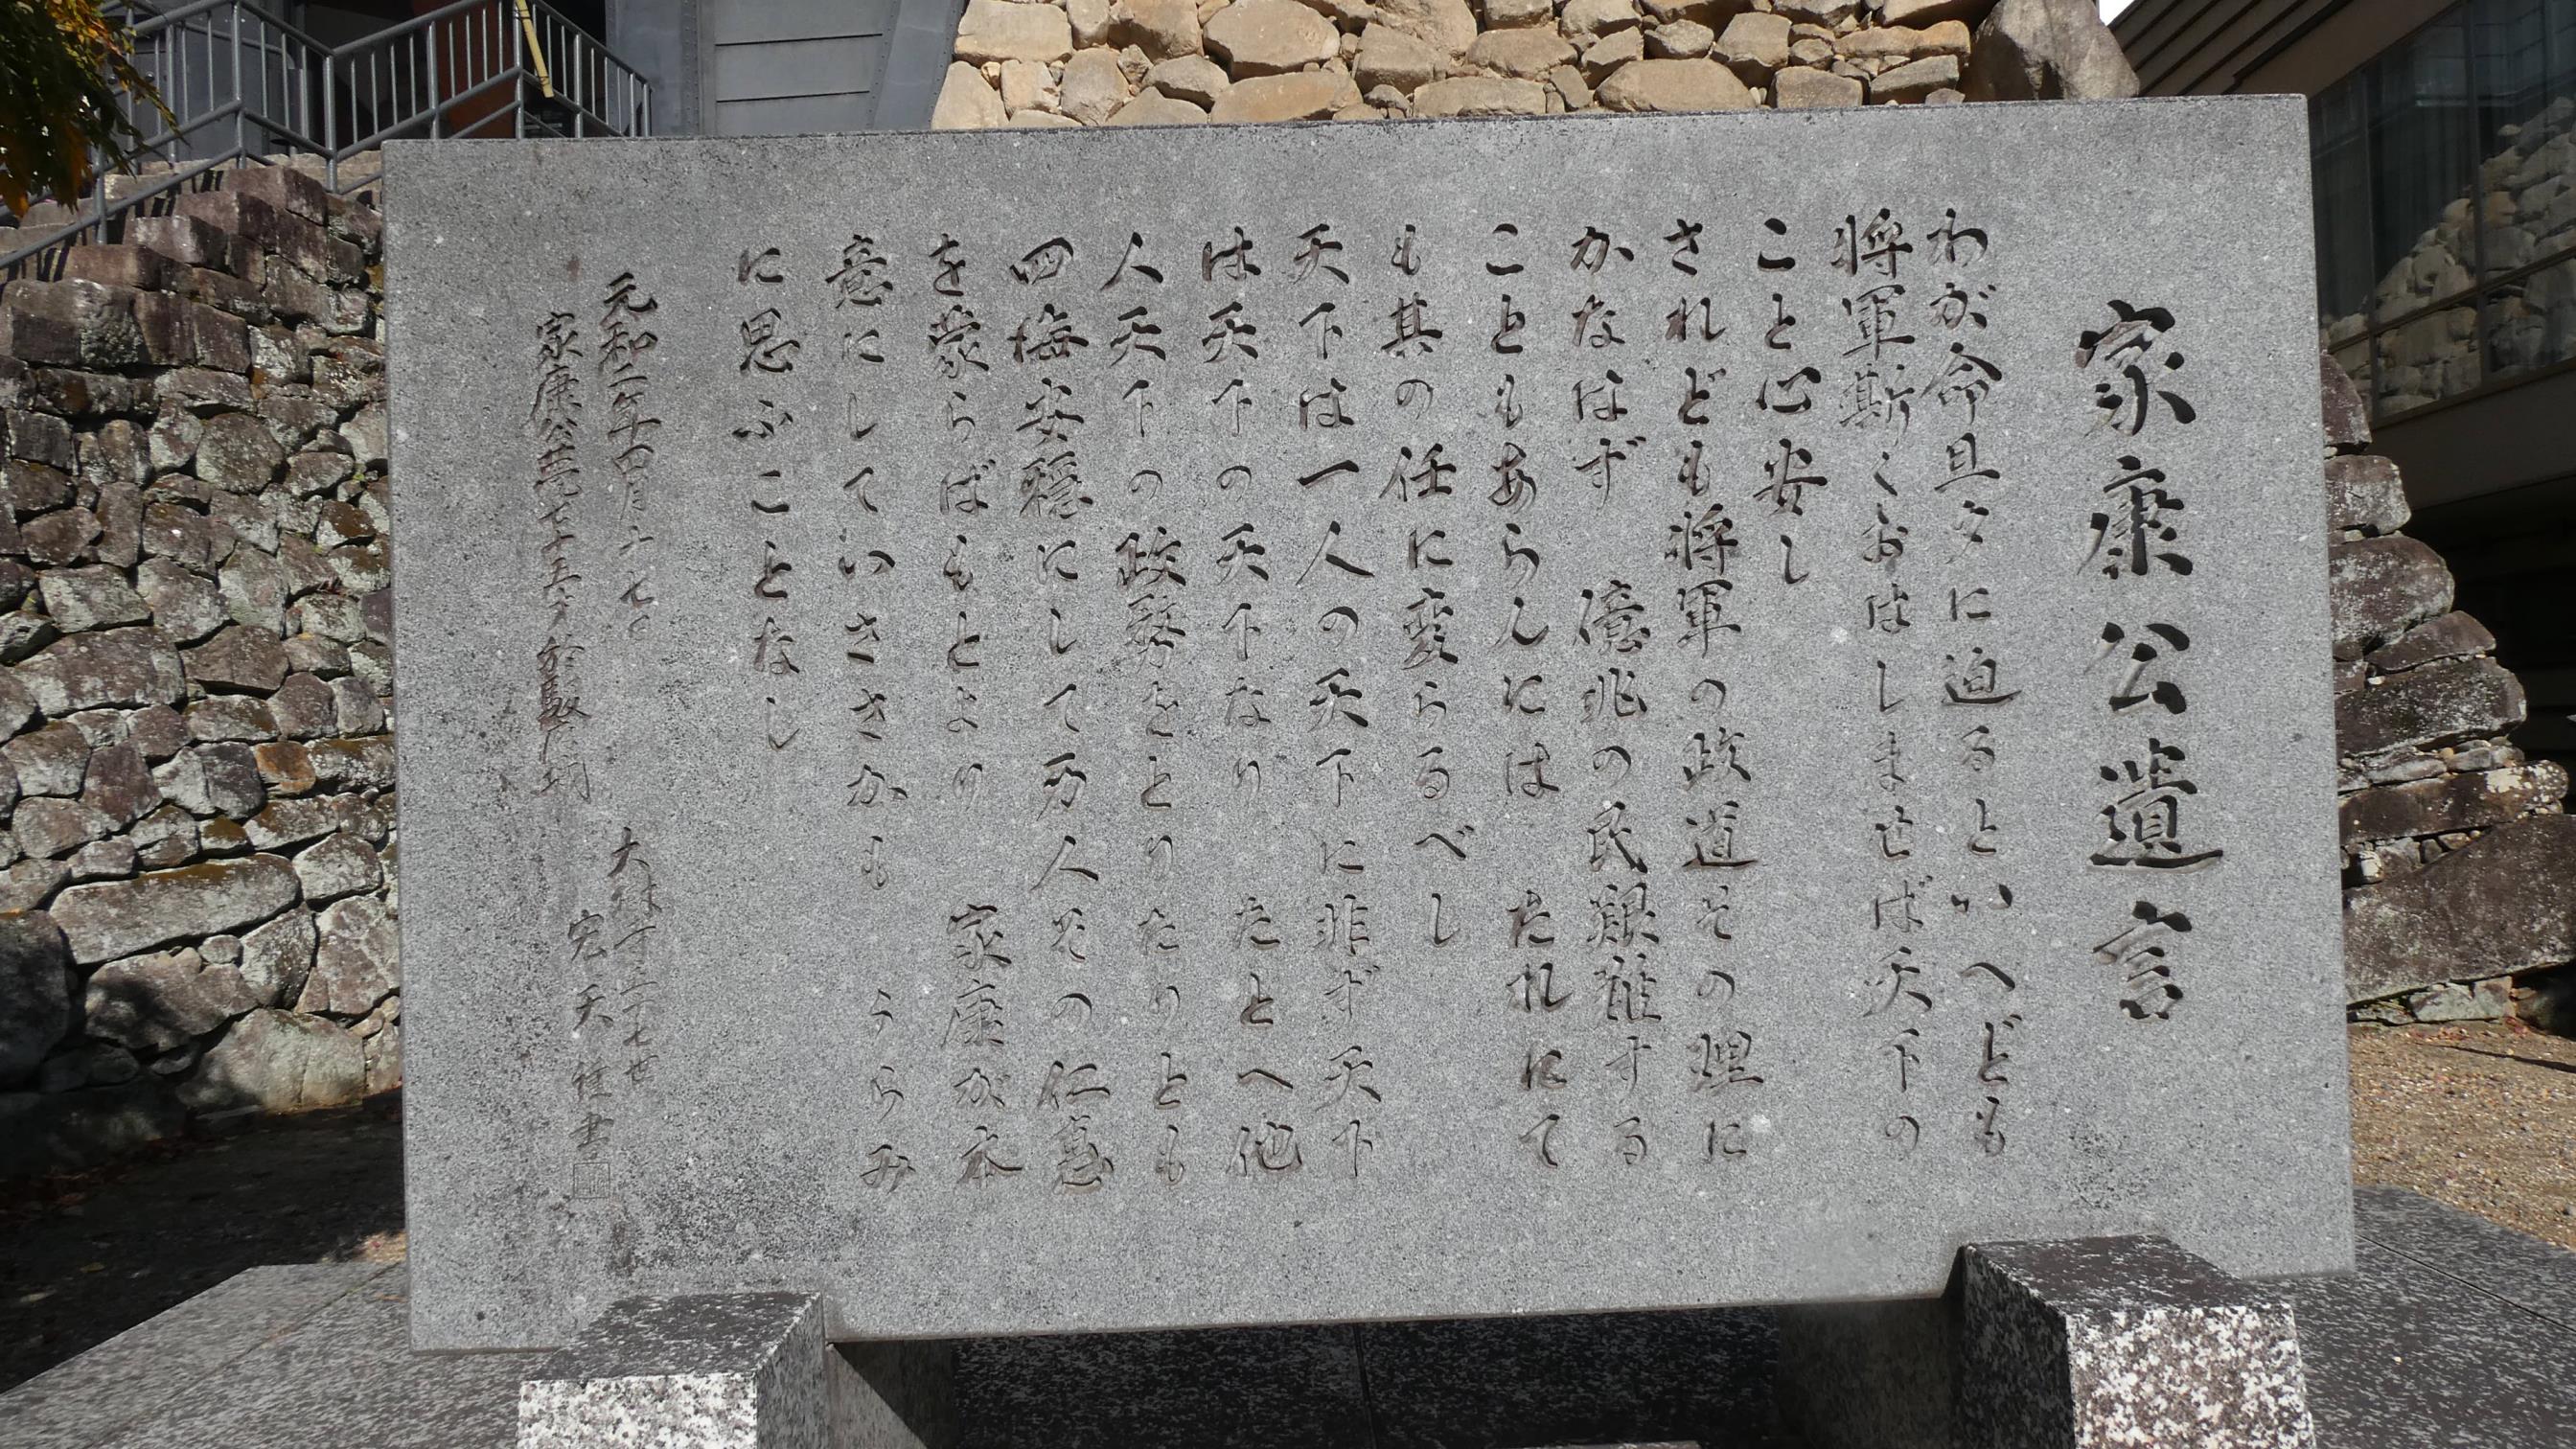 家康公遺言
わが命旦夕に迫るといへども
将軍斯くおはしませば天下の
こと心安し
されども将軍の政道その理に
かなはず 億兆の民艱難する
こともあらんには たれにて
も其の任に変らるべし
天下は一人の天下に非ず天下
は天下の天下なり たとへ他
人天下の政務をとりたりとも
四海安穏にして万人その仁慈
を蒙らばもとより 家康が本
意にしていささかも うらみ
に思ふことなし
元和二年四月十七日
家康公薨 七十五才 於駿府城
大樹寺五十七世
宏天 書